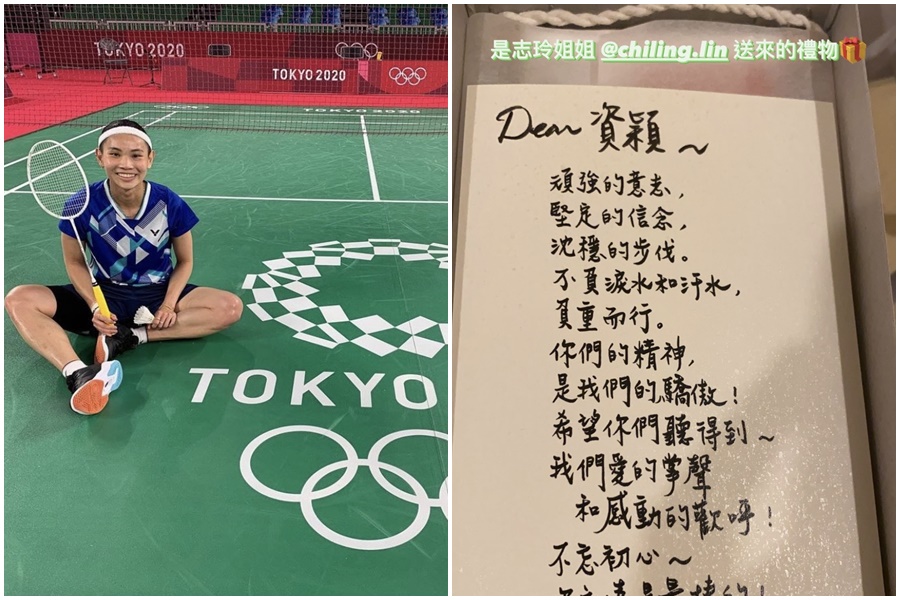 TOKYO 2020
TOKYO 2020
TOKYO 2020
V
TOKYO
是志玲姐姐 @chiling.lin 送來的禮物🎁
Dear 資穎～
頑強的意志，
堅定的信念，
沈穩的步伐。
不負淚水和汗水，
負重而行。
你們的精神，
是我們的驕傲！
希望你們聽得到～
我們愛的掌聲
和感動的歡呼！
不忘初心～